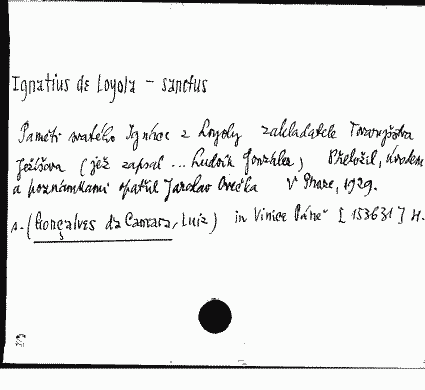 Ignatius de Loyola - sanctus
Paměti svatého Ignáce z Loyoly zakladatele Tovaryšstva
Ježíšova (jež zapsal ... Ludvík Gonzales) Přeložil, úvodem
a poznámkami opatřil Jaroslav Ovečka V Praze, 1929.
s. (Gonçalves da Camara, Luiz) in Vinice Páně [153631] H.